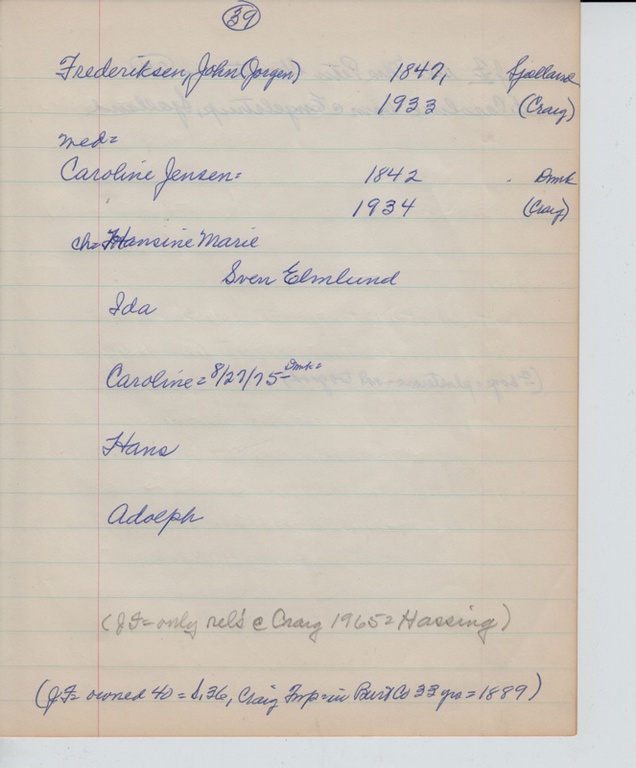 39
Frederiksen, John (Jorgen) 1847, Sjælland
1933 (Craig)
wed=
Caroline Jensen= 1842 Dmk
1934 (Craig)
ch= Hansine Marie
Sven Elmlund
Ida
Caroline = 8/27/75- Dmk=
Hans
Adolph
(JF= only rel's c Craig 1965= Hassing)
(JF= owned 40 = S.36, Craig Tmp= in Burt Co 33 yrs = 1889)